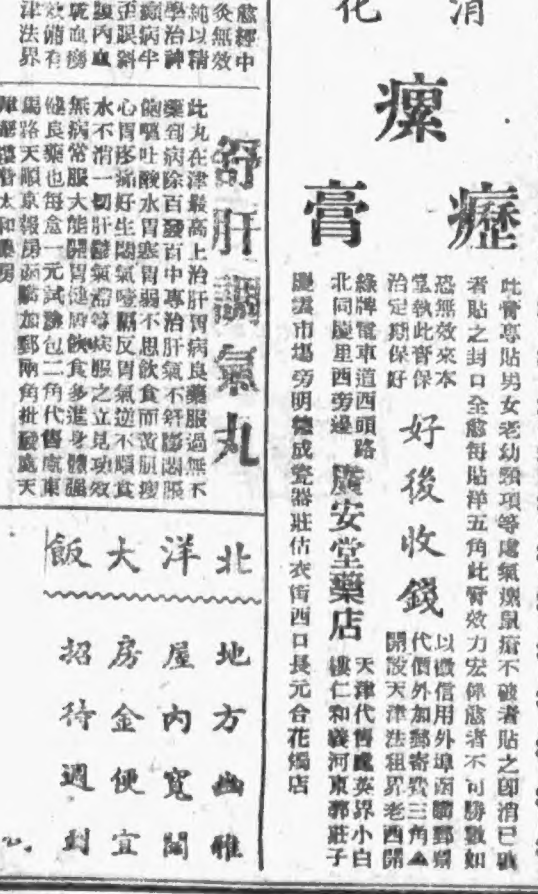 消
化
瘰
癧
膏
此膏專貼男女老幼頸項等處氣瘰鼠瘡不破者貼之即消已破
者貼之封口全愈每貼洋五角此膏效力宏偉愈者不可勝數如
恐無效來本
堂執此膏保
治定期保好
好後收錢
以徵信用外埠函購郵票
代價外加郵寄費三角▲
開設天津法租界老西開
綠牌電車道西頭路
北同慶里西旁邊
廣安堂藥店
天津代售處英界小白
樓仁和義河東郭莊子
慶雲市場旁明德成瓷器莊估衣街西口長元合花燭店
愈經中
灸無效
純以精
學治神
病半
歪誤斜
腹內血
乾血癆
效備有
津法界
舒肝調氣丸
此丸在津最高上治肝胃病良藥服過無不
藥到病除百發百中專治肝氣不舒膨悶脹
飽噎吐酸水胃塞胃弱不思飲食面黃肌瘦
心胃疼痛好生悶氣噎膈反胃氣逆不順食
水不消一切肝鬱氣滯等病服之立見功效
無病常服大能開胃健脾飲食多進身體強
健良藥也每盒一元試驗包二角代售處東
馬路天順京報房函購加郵兩角批發處天
太和藥房
北洋大飯
地方幽雅
屋內寬闊
房金便宜
招待週到